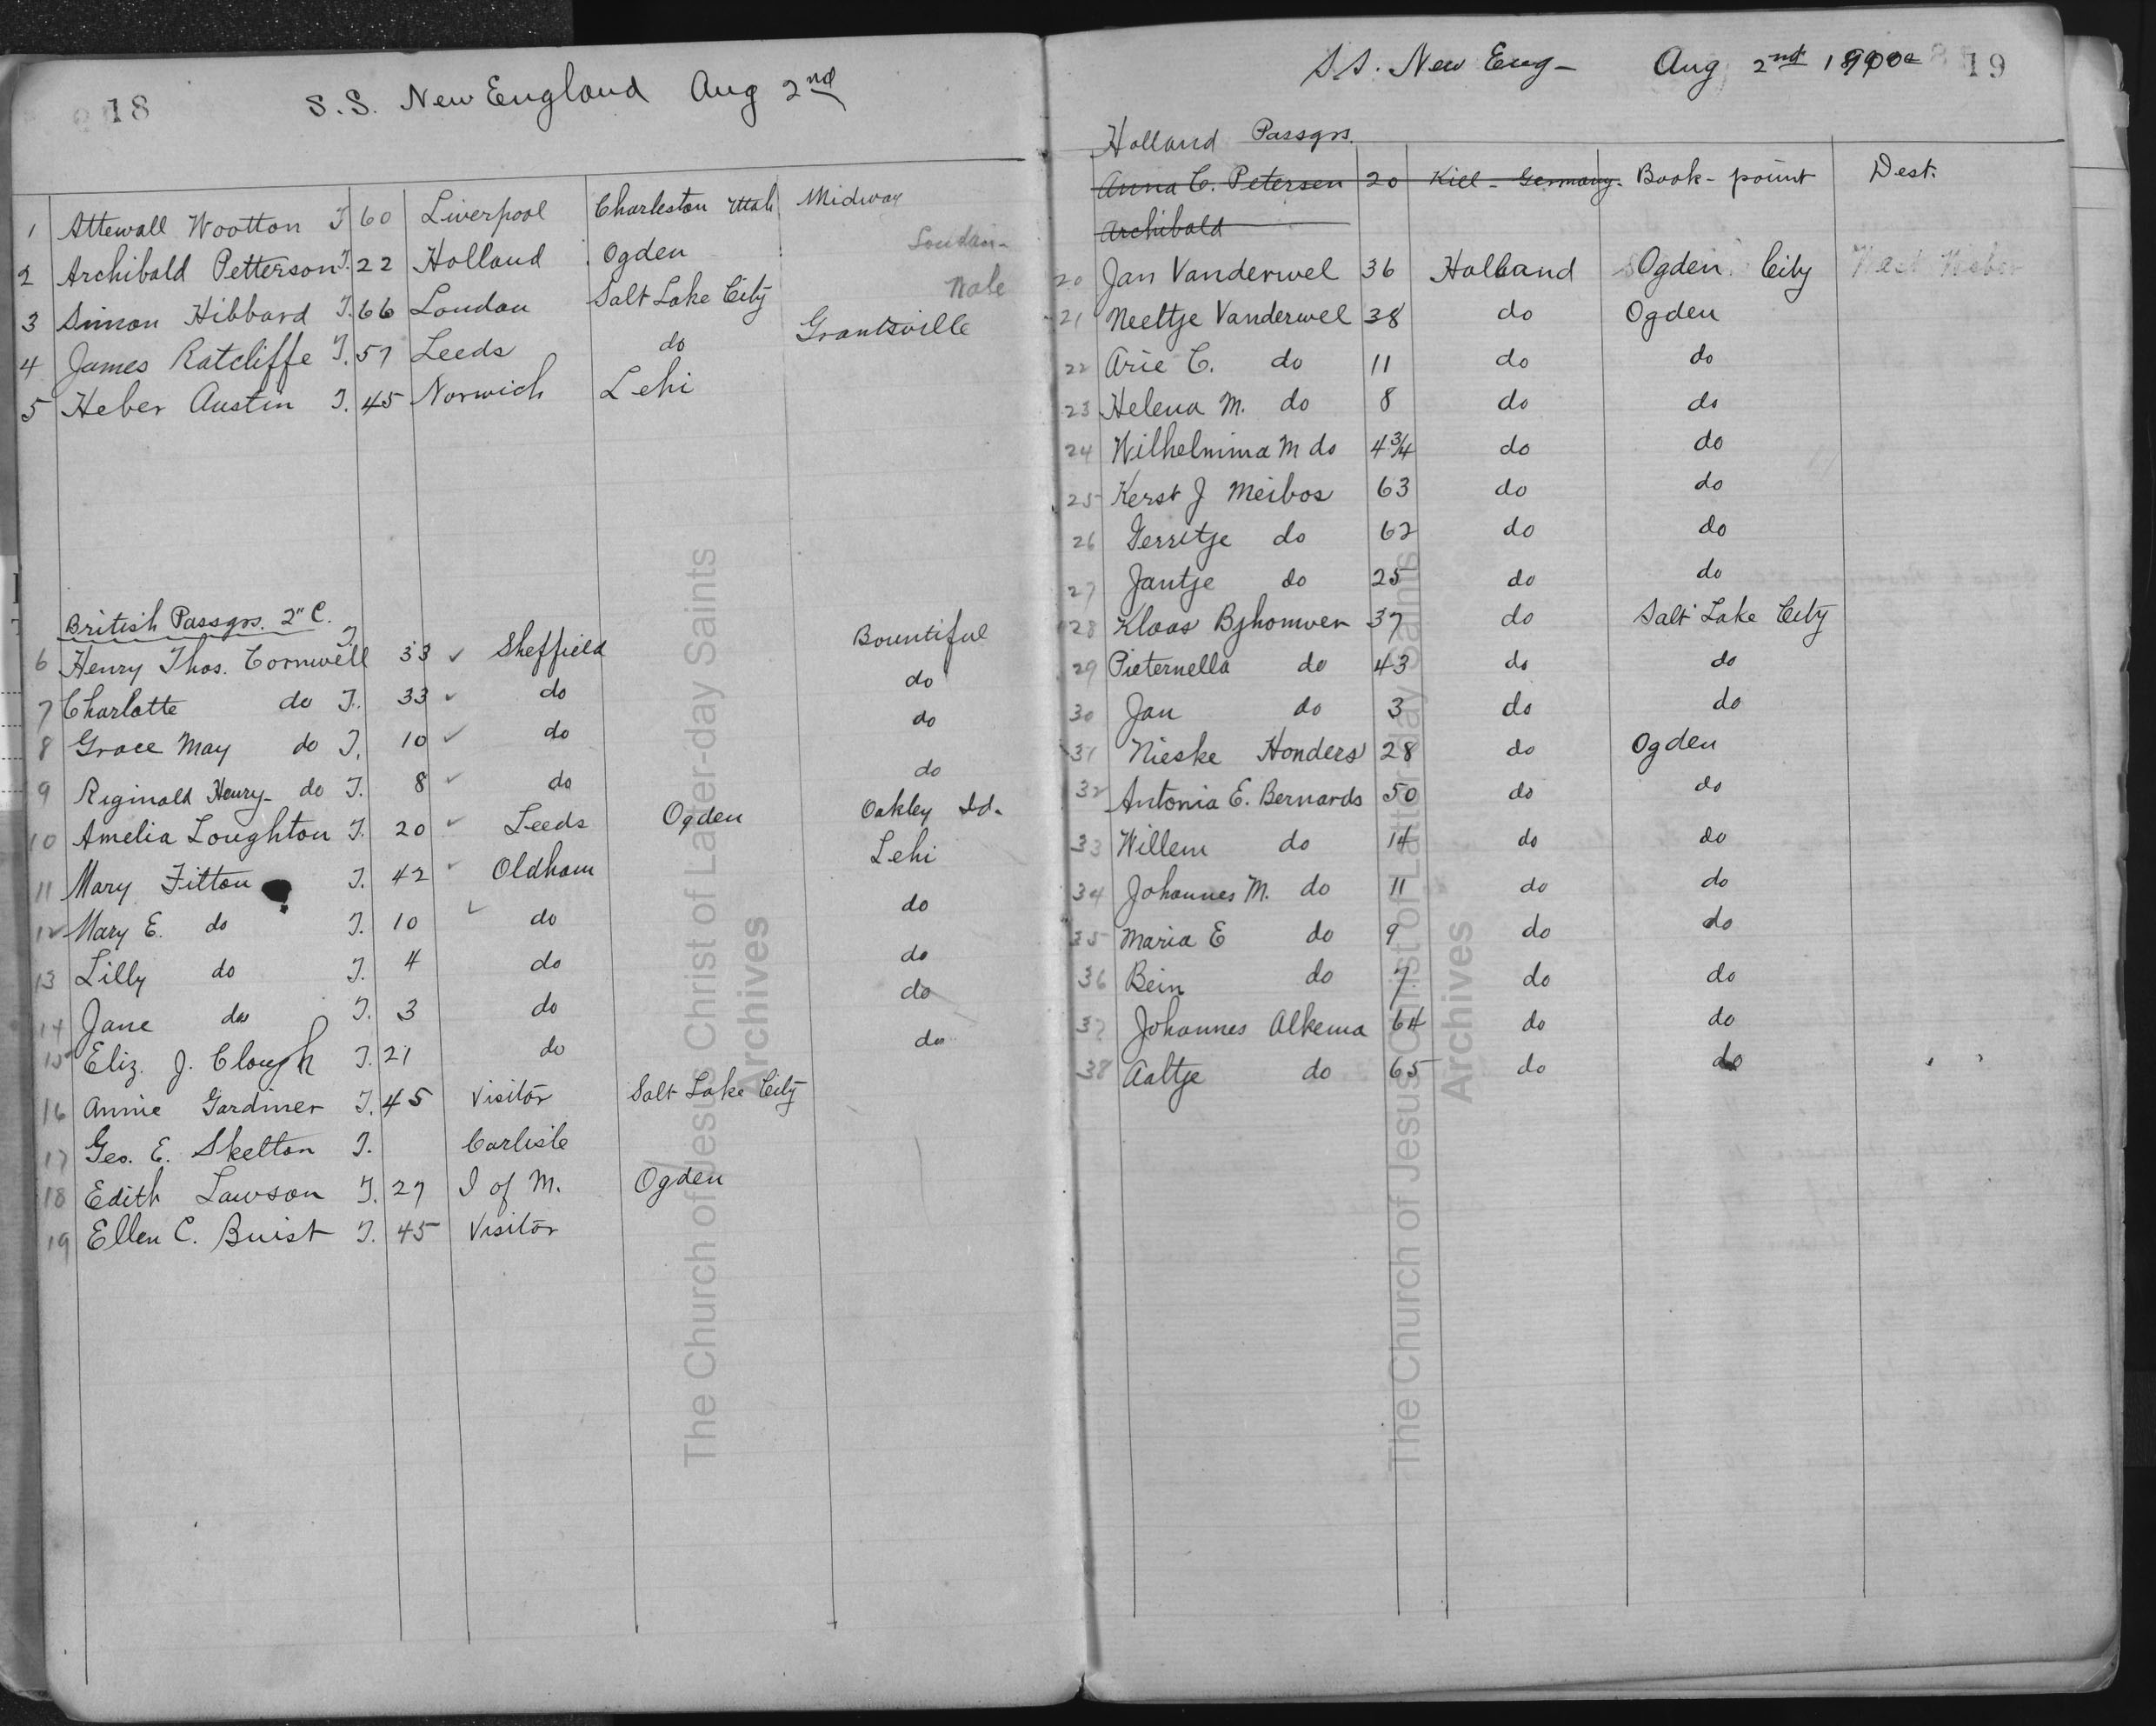 18 S.S. New England Aug 2nd
1 Attewall Wootton T 60 Liverpool Charleston Utah Midway
2 Archibald Petterson T. 22 Holland Ogden
3 Simon Hibbard T. 66 London Salt Lake City
4 James Ratcliffe T. 57 Leeds do Grantsville
5 Heber Austin T. 45 Norwich Lehi
British Passgrs. 2" C.
6 Henry Thos. Cornwell T 33 ✓ Sheffield Bountiful
7 Charlotte do T. 33 ✓ do do
8 Grace May do T. 10 ✓ do do
9 Riginald Henry do T. 8 ✓ do do
10 Amelia Loughton T. 20 ✓ Leeds Ogden Oakley Id.
11 Mary Fitton T. 42 ✓ Oldham Lehi
12 Mary E. do T. 10 ✓ do do
13 Lilly do T. 4 do do
14 Jane do T. 3 do do
15 Eliz. J. Clough T. 21 do do
16 Annie Gardiner T. 45 Visitor Salt Lake City
17 Geo. E. Skelton T. Carlisle
18 Edith Lawson T. 27 I of M. Ogden
19 Ellen C. Buist T. 45 Visitor
The Church of Jesus Christ of Latter-day Saints
Archives
S.S. New Eng- Aug 2nd 1900 19
Holland Passgrs.
Anna C. Petersen 20 Kiel - Germany. Book-point Dest.
Archibald
20 Jan Vanderwel 36 Holland Ogden City West Weber
21 Neeltje Vanderwel 38 do Ogden
22 Arie C. do 11 do do
23 Helena M. do 8 do do
24 Wilhelmina M do 4 3/4 do do
25 Kerst J Meibos 63 do do
26 Gerritje do 62 do do
27 Jantje do 25 do do
28 Klaas Bjhouwer 37 do Salt Lake City
29 Pieternella do 43 do do
30 Jan do 3 do do
31 Nieske Honders 28 do Ogden
32 Antonia E. Bernards 50 do do
33 Willem do 14 do do
34 Johannes M. do 11 do do
35 Maria E do 9 do do
36 Bein do 7 do do
37 Johannes Alkema 64 do do
38 Aaltje do 65 do do
The Church of Jesus Christ of Latter-day Saints
Archives